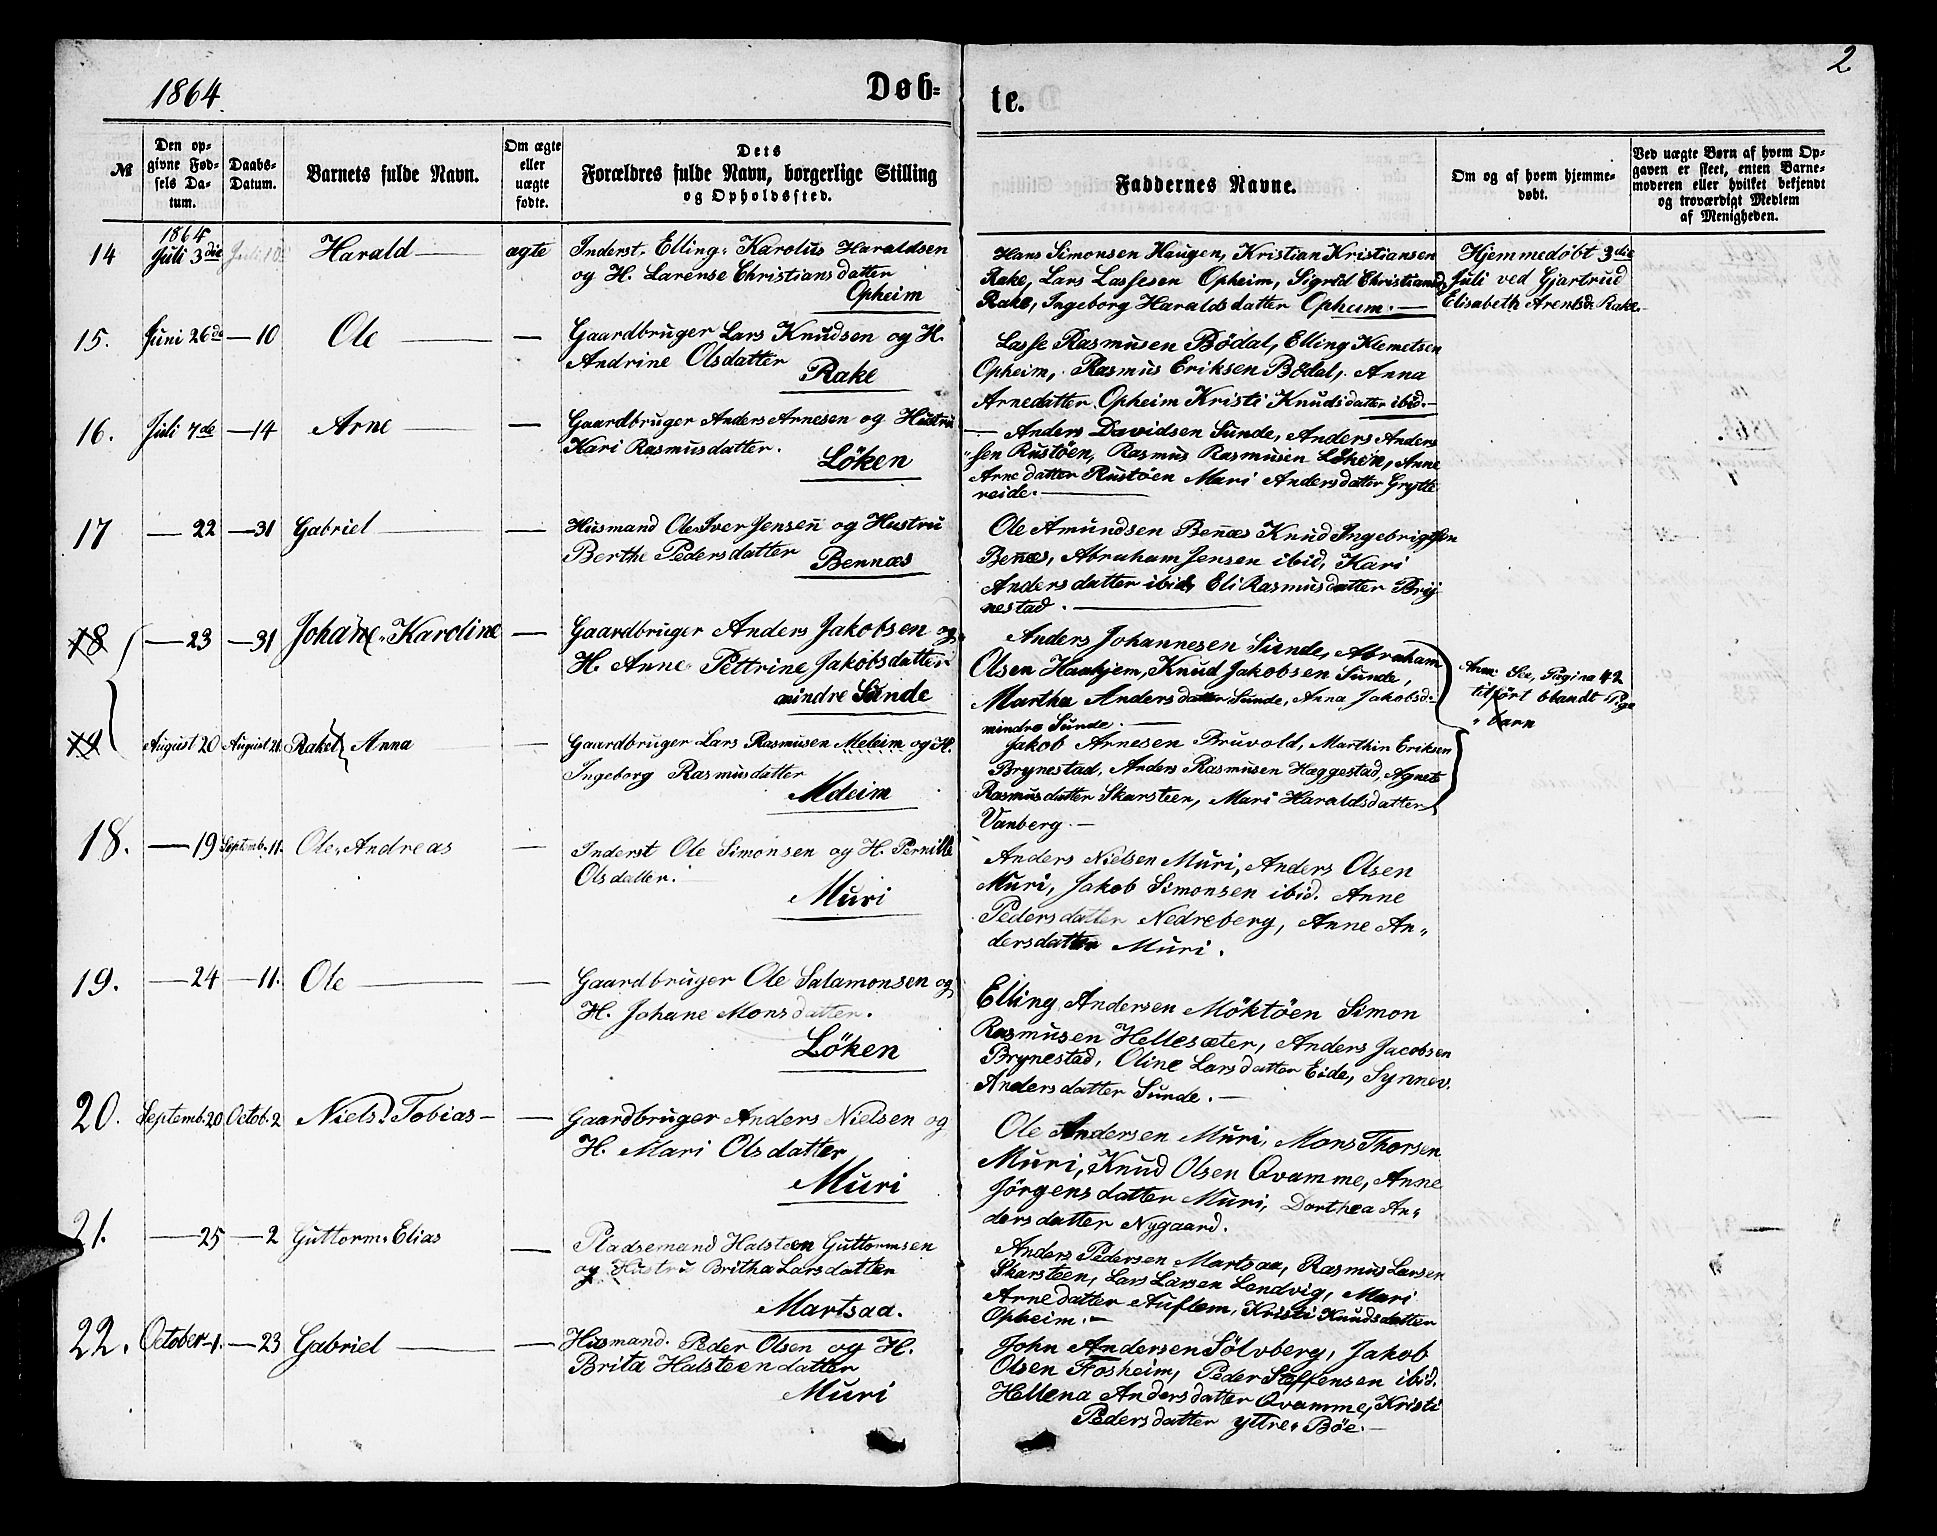 2
1864.
Døb-
te.
№
Den op-
givne Fød-
sels Da-
tum.
Daabs-
Datum.
Barnets fulde Navn.
Om ægte
eller
uægte
fødte.
Dets
Forældres fulde Navn, borgerlige Stilling
og Opholdssted.
Faddernes Navne.
Om og af hvem hjemme-
døbt.
Ved uægte Børn af hvem Op-
gaven er skeet, enten Barne-
moderen eller hvilket bekjendt
og troværdigt Medlem
af Menigheden.
1864
14 Juli 3die Juli 10 Harald — ægte
Inderst. Elling. Karolius Haraldsen
og H. Larense Christiansdatter
Opheim
Hans Simonsen Haugen, Kristian Kristiansen
Rake, Lars Lassesen Opheim, Sigrid Christiansd
Rake, Ingeborg Haraldsdatter Opheim. —
Hjemmedøbt 3die
Juli ved Gjartrud
Elisabeth Arentsd. Rake.
15. Juni 26de — 10 Ole — —
Gaardbruger Lars Knudsen og H.
Andrine Olsdatter
Rake
Lasse Rasmusen Bödal, Elling Klemetsen
Opheim, Rasmus Eriksen Bödal, Anna
Arnedatter Opheim Kristi Knudsdatter ibid. —
16. Juli 7de — 14 Arne — —
Gaardbruger Anders Arnesen og Hustru
Kari Rasmusdatter.
Löken
— Anders Davidsen Sunde, Anders Anders
sen Rustöen, Rasmus Rasmusen Löken, Anne
Arnedatter Rustöen Mari Andersdatter Grytte
reide. —
17 — 22 — 31 Gabriel — —
Husmand Ole Iver Jensen og Hustru
Berthe Pedersdatter
Bennæs
Ole Amundsen Benæs Knud Ingebrigtsen
Benæs, Abraham Jensen ibid, Kari
Andersdatter ibid, Eli Rasmusdatter Bry
nestad. —
18 — 23 — 31 Johane Karoline —
Gaardbruger Anders Jakobsen og
H. Anne Pettrine Jakobsdatter
mindre Sunde
Anders Johannesen Sunde, Abraham
Olsen Haahjem, Knud Jakobsen Sunde,
Martha Andersdatter Sunde, Anna Jakobsd.
mindre Sunde. —
Anm. See, Pagina 42
tilført blandt Pige
barn
19 August 20 August 28 Rakel Anna
Gaardbruger Lars Rasmusen Meleim og H.
Ingeborg Rasmusdatter
Mdeim
Jakob Arnesen Bruvold, Marthin Eriksen
Brynestad, Anders Rasmusen Hæggestad, Agnete
Rasmusdatter Skarsteen, Mari Haraldsdatter
Vanberg. —
18. — 19 Septemb. 11. Ole Andreas —
Inderst Ole Simonsen og H. Pernille
Olsdatter.
Muri
Anders Nielsen Muri, Anders Olsen
Muri, Jakob Simonsen ibid. Anne
Pedersdatter Nedreberg, Anne An„
dersdatter Muri.
19. — 24 — 11. Ole — —
Gaardbruger Ole Salamonsen og
H. Johane Monsdatter.
Löken
Elling Andersen Möktöen Simon
Rasmusen Hellesæter, Anders Jacobsen
Brynestad, Oline Larsdatter Eide, Synnev.
Andersdatter Sunde. —
20. Septemb. 20 Octob. 2 Niels. Tobias — —
Gaardbruger Anders Nielsen og
H. Mari Olsdatter
Muri
Ole Andersen Muri, Mons Thorsen
Muri, Knud Olsen Qvamme, Anne
Jörgensdatter Muri, Dorthea An„
dersdatter Nygaard.
21. — 25 — 2 Guttorm. Elias —
Pladsemand Halsteen Guttormsen
og Hustru Britha Larsdatter
Martsaa.
Anders Pedersen Martsaa, Rasmus Larsen
Skarsteen, Lars Larsen Lendvig, Mari
Arnedatter Auflem, Kristi Knudsdatter
Opheim. —
22. October 1. — 23 Gabriel — —
Husmand. Peder Olsen og H.
Brita Halsteendatter
Muri
John Andersen Sölvberg, Jakob
Olsen Fosheim, Peder Steffensen ibid.
Hellena Andersdatter Qvamme, Kristi
Pedersdatter yttre Böe. —